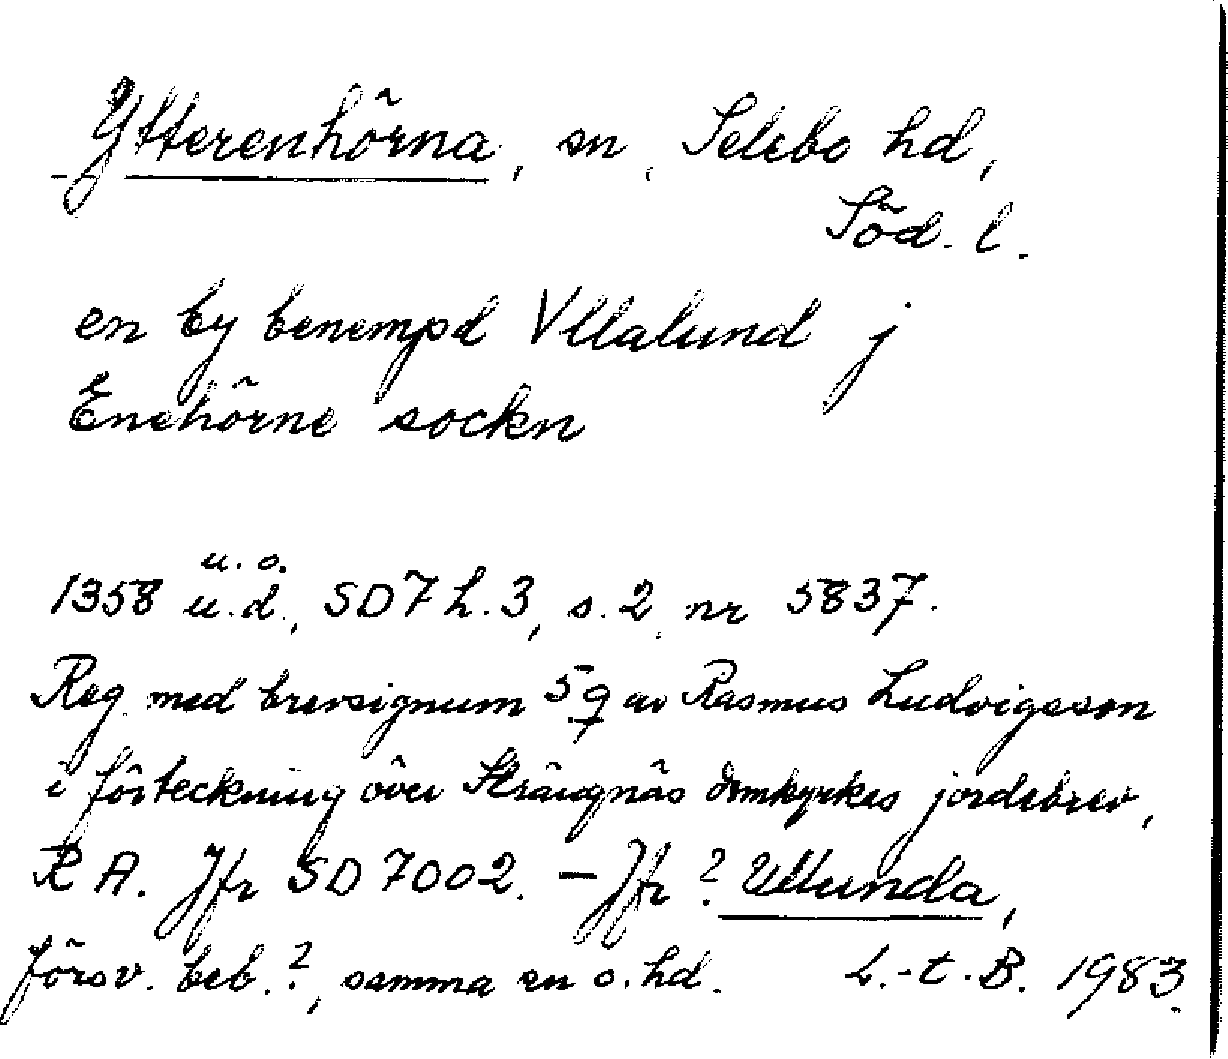 Ytterenhörna, sn, Selebo hd,
Söd. l.
en by benempd Vllalund j
Enehörne sockn
u. o.
1358 u.d., SD7 h.3, s.2, nr 5837.
Reg. med brevsignum 59 av Rasmus Ludvigsson
i förteckning över Strängnäs domkyrkas jordebrev,
RA. Jfr SD 7002. – Jfr ? Ullunda,
försv. beb.?, samma sn o. hd. L.-t.B. 1983.